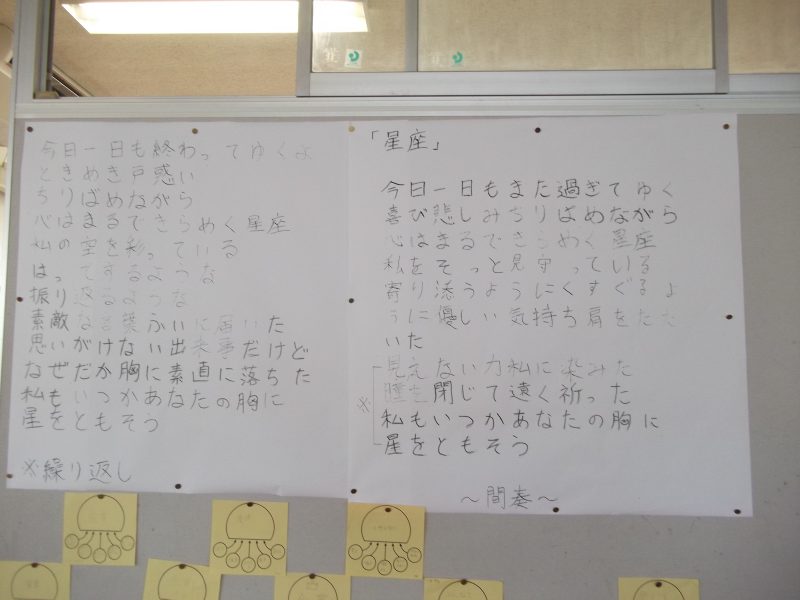 「星座」
今日一日もまた過ぎてゆく
喜び悲しみちりばめながら
心はまるできらめく星座
私をそっと見守っている
寄り添うようにくすぐるよ
うに優しい気持ち肩をたた
いた
見えない力私に染みた
瞳を閉じて遠く祈った
※
私もいつかあなたの胸に
星をともそう
～間奏～
今日一日も終わってゆくよ
ときめき戸惑い
ちりばめながら
心はまるできらめく星座
私の空を彩っている
はってするような
振り返るような
素敵な言葉ふいに届いた
思いがけない出来事だけど
なぜだか胸に素直に落ちた
私もいつかあなたの胸に
星をともそう
※繰り返し